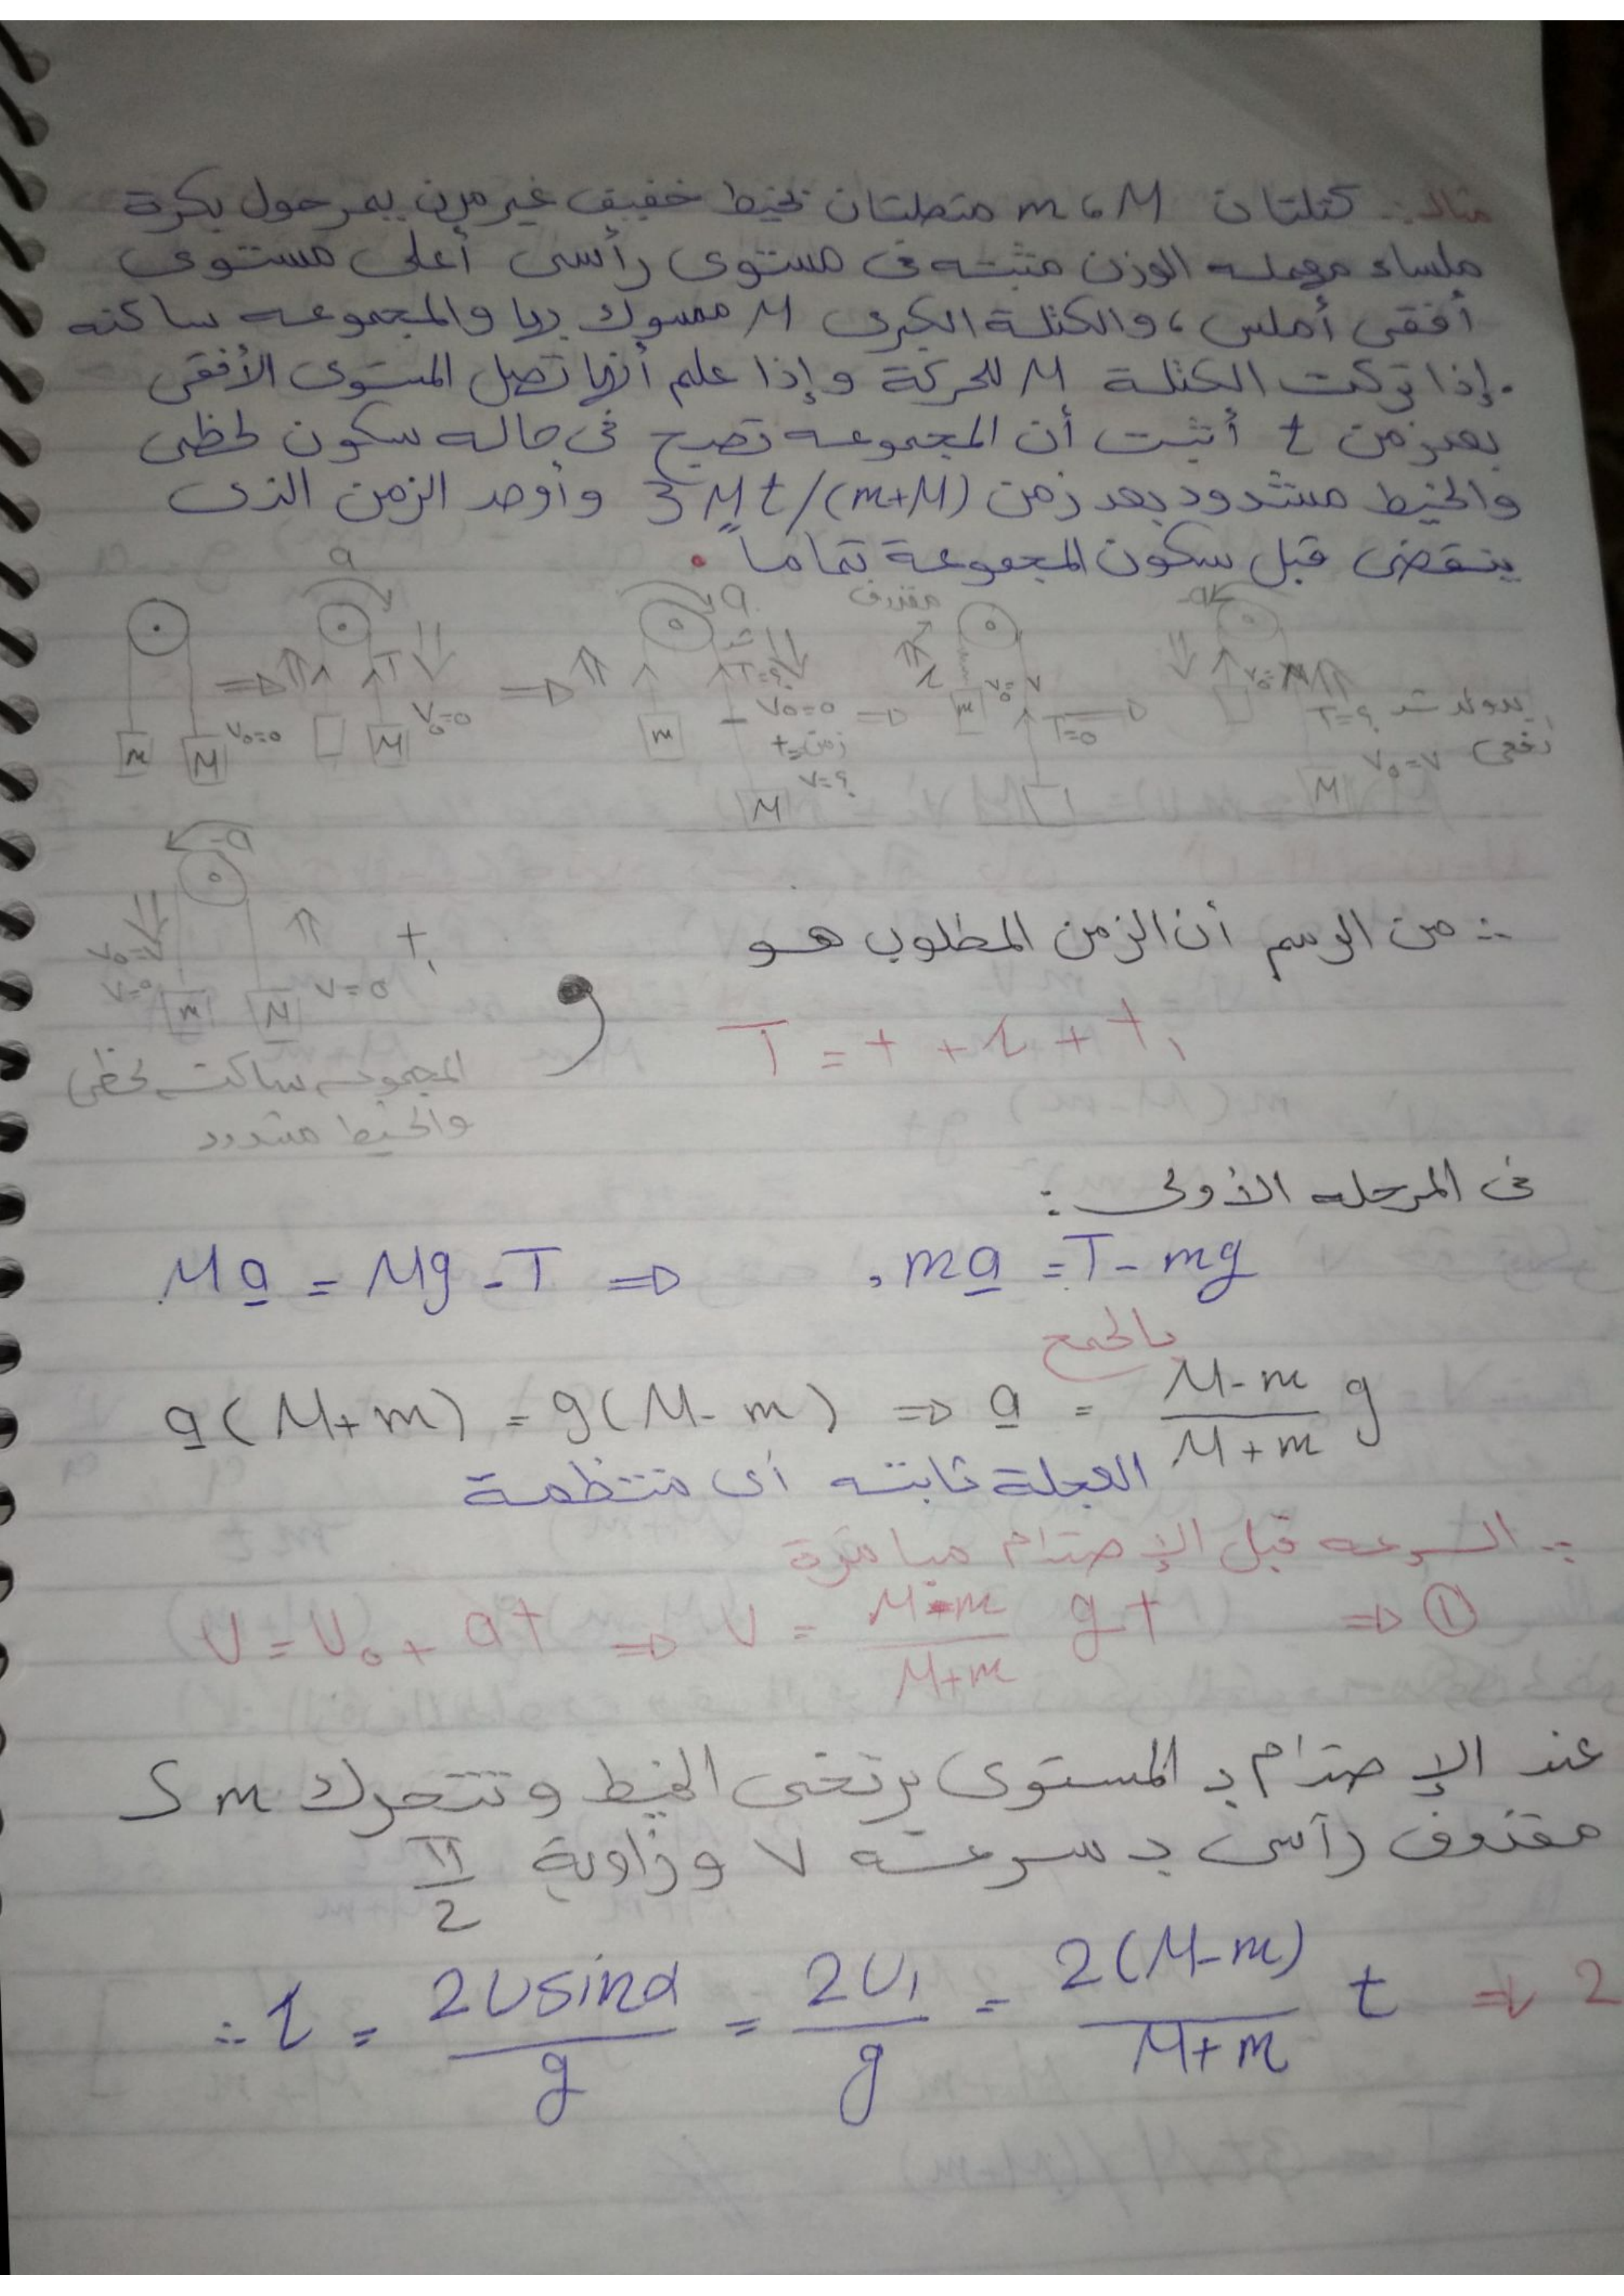 مثال: كتلتان m، M متصلتان بخيط خفيف غير مرن يمر حول بكرة
ملساء مهمله الوزن مثبته فى مستوى رأسى أعلى مستوى
أفقى أملس، والكتلة الكبرى M ممسوك بها والمجموعه ساكنه
. إذا تركت الكتلة M للحركة وإذا علم أنها تصل المستوى الأفقى
بعد زمن t أثبت أن المجموعه تصبح فى حاله سكون لحظى
والخيط مشدود بعد زمن 3Mt/(m+M) وأوجد الزمن الذى
ينقضى قبل سكون المجموعة تماماً.
a
m M V₀=0
T M V₀=0
a m T=? V₀=0 زمن=t V=? M
مقذوف m V₀=V T=0
-a T=? V₀=V M
-a V₀=V V=0 m M V=0 t₁
المجموعه ساكنه لحظى
والخيط مشدود
∴ من الرسم أن الزمن المطلوب هو
T = t + τ + t₁
فى المرحله الأولى:
Ma = Mg - T ⇒ , ma = T - mg
بالجمع
a(M+m) = g(M-m) ⇒ a = \frac{M-m}{M+m} g
العجلة ثابته أى منتظمة
∴ السرعه قبل الإصتدام مباشرة
v = v₀ + at ⇒ v = \frac{M-m}{M+m} gt ⇒ ①
عند الإصتدام بـ المستوى يرتخى الخيط وتتحرك m كـ
مقذوف رآسى بـ سرعته V وزاوية \frac{π}{2}
∴ τ = \frac{2v sin α}{g} = \frac{2v₁}{g} = \frac{2(M-m)}{M+m} t ⇒ 2